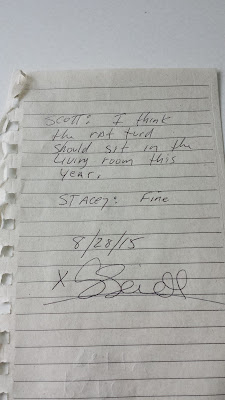 SCOTT: I think
the rat turd
should sit in the
living room this
year.
STACEY: Fine
8/28/15
X